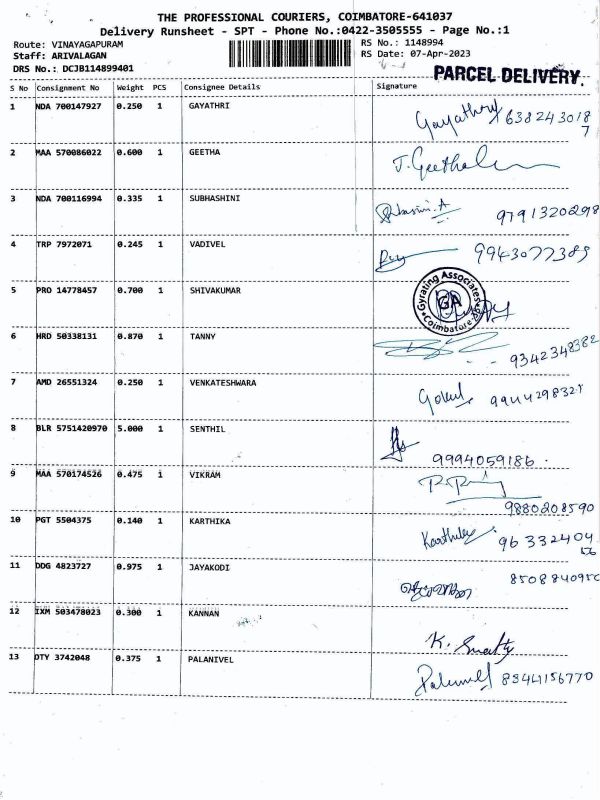 THE PROFESSIONAL COURIERS, COIMBATORE-641037
Delivery Runsheet - SPT - Phone No.:0422-3505555 - Page No.:1
Route: VINAYAGAPURAM RS No.: 1148994
Staff: ARIVALAGAN RS Date: 07-Apr-2023
DRS No.: DCJB114899401 PARCEL DELIVERY.
S No Consignment No Weight PCS Consignee Details Signature
1 NDA 700147927 0.250 1 GAYATHRI Gayathry 638243018
7
2 MAA 570086022 0.600 1 GEETHA J. Geetha
3 NDA 700116994 0.335 1 SUBHASHINI 9791320298
4 TRP 7972071 0.245 1 VADIVEL 9943077389
5 PRO 14778457 0.700 1 SHIVAKUMAR Gyrating Associates GA Coimbatore
6 HRD 50338131 0.870 1 TANNY 9342348382
7 AMD 26551324 0.250 1 VENKATESHWARA Gokul
8 BLR 5751420970 5.000 1 SENTHIL 9994059186.
9 MAA 570174526 0.475 1 VIKRAM 9880208590
10 PGT 5504375 0.140 1 KARTHIKA 96 332404
56
11 DDG 4823727 0.975 1 JAYAKODI 8508840950
12 IXM 503478023 0.300 1 KANNAN K.
13 DTY 3742048 0.375 1 PALANIVEL Palanivel 8344156770